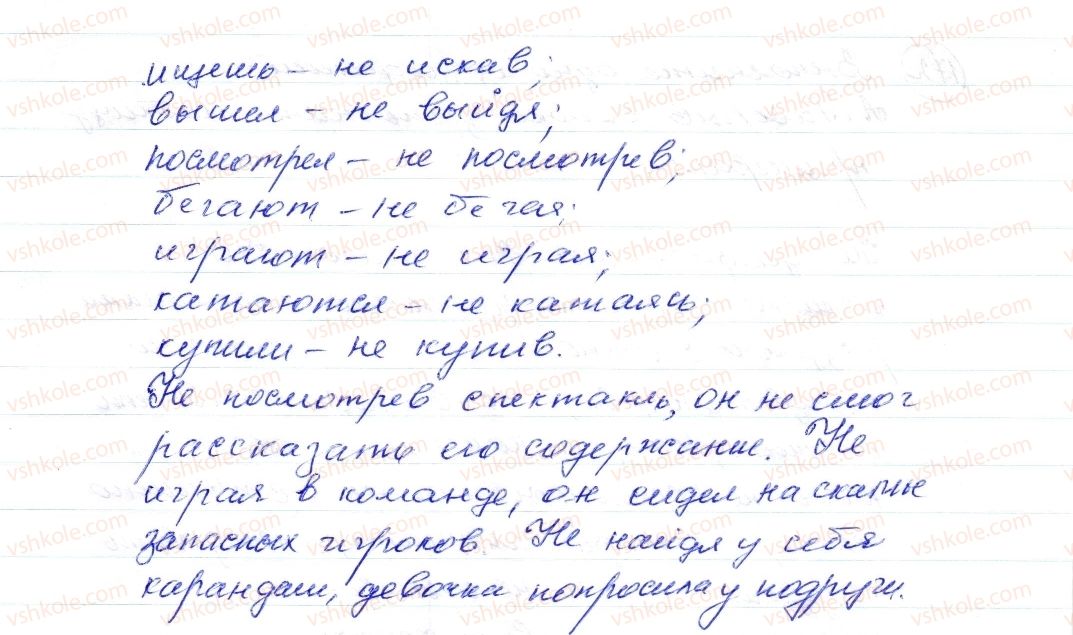 ищешь – не искав;
вышел – не выйдя;
посмотрел – не посмотрев;
бегают – не бегая;
играют – не играя;
катаются – не катаясь;
купили – не купив.
Не посмотрев спектакль, он не смог
рассказать его содержание. Не
играя в команде, он сидел на скамье
запасных игроков. Не найдя у себя
карандаш, девочка попросила у подруги.
vshkole.com